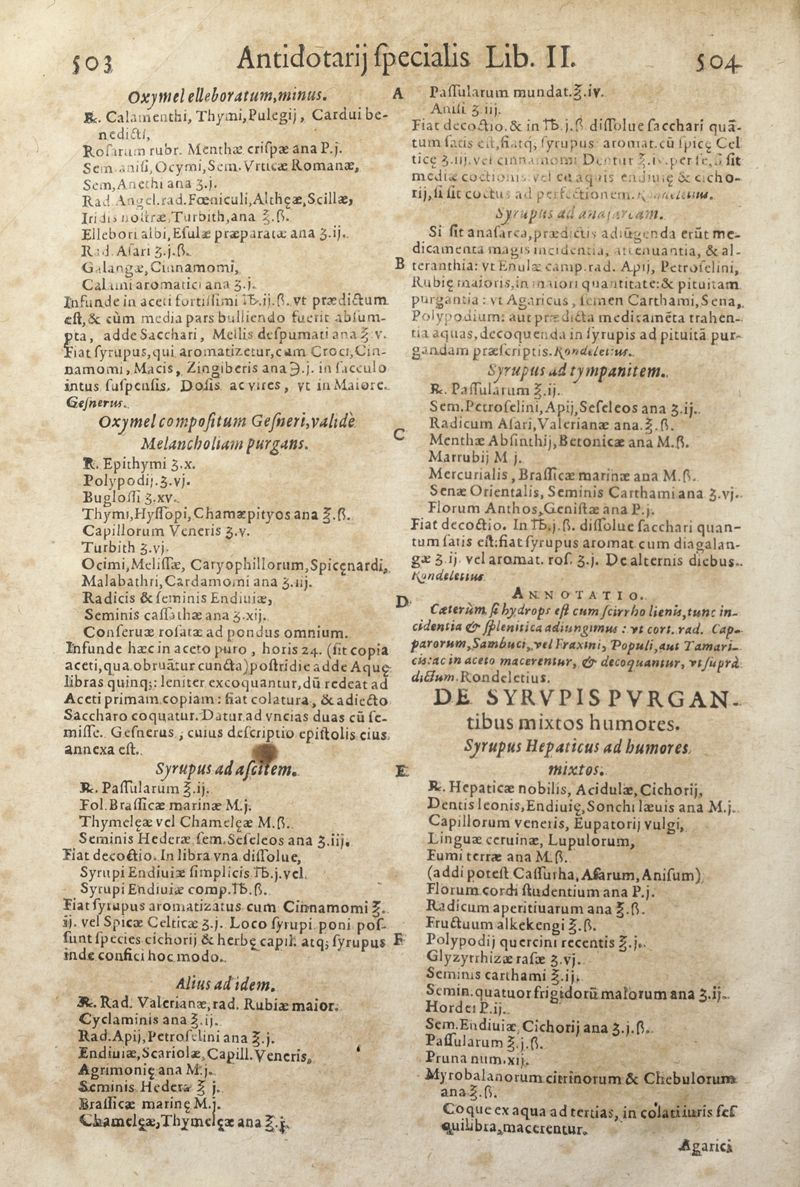 503 Antidotarij ſpecialis Lib. II. 504
Oxymel elleboratum, minus.
℞. Calamenthi, Thymi, Pulegij, Cardui be-
nedicti,
Roſarum rubr. Menthæ criſpæ ana P.j.
Sem. aniſi, Ocymi, Sem. Vrticæ Romanæ,
Sem, Anethi ana ʒ.j.
Rad. Angel. rad. Fœniculi, Altheæ, Scillæ,
Iridis noſtræ, Turbith, ana ℥.ß.
Ellebori albi, Eſulæ præparatæ ana ʒ.ij.
Rad. Aſari ʒ.j.ß.
Galangæ, Cinnamomi,
Calami aromatici ana ʒ.j.
Infunde in aceti fortiſſimi ℔.ij.ß. vt prædictum
eſt, & cùm media pars bulliendo fuerit abſum-
pta, adde Sacchari, Mellis deſpumati ana ℥ v.
Fiat ſyrupus, qui aromatizetur, cum Croci, Cin-
namomi, Macis, Zingiberis ana ℈.j. in ſacculo
intus ſuſpenſis. Doſis ac vires, vt in Maiore.
Geſnerus.
Oxymel compoſitum Geſneri, validè
Melancholiam purgans.
℞. Epithymi ʒ.x.
Polypodij. ʒ.vj.
Bugloſſi ʒ.xv.
Thymi, Hyſſopi, Chamæpityos ana ℥.ß.
Capillorum Veneris ʒ.v.
Turbith ʒ.vj.
Ocimi, Meliſſæ, Caryophillorum, Spicęnardi,
Malabathri, Cardamomi ana ʒ.iij.
Radicis & ſeminis Endiuiæ,
Seminis caſſuthæ ana ʒ.xij.
Conſeruæ roſatæ ad pondus omnium.
Infunde hæc in aceto puro, horis 24. (ſit copia
aceti, qua obruãtur cuncta) poſtridie adde Aquę
libras quinq;: leniter excoquantur, dũ redeat ad
Aceti primam copiam: fiat colatura, & adiecto
Saccharo coquatur. Datur ad vncias duas cũ ſe-
miſſe. Geſnerus, cuius deſcriptio epiſtolis eius
annexa eſt.
Syrupus ad aſcitem.
℞. Paſſularum ℥.ij.
Fol. Braſſicæ marinæ M.j.
Thymelęæ vel Chamelęæ M.ß.
Seminis Hederæ, ſem. Seſeleos ana ʒ.iij.
Fiat decoctio. In libra vna diſſolue,
Syrupi Endiuiæ ſimplicis ℔.j. vel
Syrupi Endiuiæ comp. ℔.ß.
Fiat ſyrupus aromatizatus cum Cinnamomi ℥.
ij. vel Spicæ Celticæ ʒ.j. Loco ſyrupi poni poſ-
ſunt ſpecies cichorij & herbę capill. atq; ſyrupus
inde confici hoc modo.
Alius ad idem.
℞. Rad. Valerianæ, rad. Rubiæ maior.
Cyclaminis ana ℥.ij.
Rad. Apij, Petroſelini ana ℥.j.
Endiuiæ, Scariolæ, Capill. Veneris,
Agrimonię ana M.j.
Seminis Hederæ ℥ j.
Braſſicæ marinę M.j.
Chamelęæ, Thymelęæ ana ℥.j.
A Paſſularum mundat. ℥.iv.
Aniſi ʒ iij.
Fiat decoctio. & in ℔.j.ß diſſolue ſacchari quã-
tum ſatis eſt, fiatq; ſyrupus aromat. cũ ſpicę Cel
ticę ʒ.iij. vel cinnamomi Dentur ℥.iv. per ſe, ſi ſit
mediæ coctionis. vel cũ aquis endiuię & cicho-
rij, ſi ſit coctus ad perfectionem. Rondeletius.
Syrupus ad anaſarcam.
Si ſit anaſarca, prædictis adiũgenda erũt me-
dicamenta magis incidentia, attenuantia, & al-
B teranthia: vt Enulæ camp. rad. Apij, Petroſelini,
Rubię maioris, in maiori quantitate: & pituitam
purgantia: vt Agaricus, ſemen Carthami, Sena,
Polypodium: aut prædicta medicamẽta trahen-
tia aquas, decoquenda in ſyrupis ad pituitã pur-
gandam præſcriptis. Rondeletius.
Syrupus ad tympanitem.
℞. Paſſularum ℥.ij.
Sem. Petroſelini, Apij, Seſeleos ana ʒ.ij.
Radicum Aſari, Valerianæ ana. ℥.ß.
C Menthæ Abſinthij, Betonicæ ana M.ß.
Marrubij M j.
Mercurialis, Braſſicæ marinæ ana M.ß.
Senæ Orientalis, Seminis Carthami ana ʒ.vj.
Florum Anthos, Geniſtæ ana P.j.
Fiat decoctio. In ℔.j.ß. diſſolue ſacchari quan-
tum ſatis eſt: fiat ſyrupus aromat. cum diagalan-
gæ ʒ ij. vel aromat. roſ. ʒ.j. De alternis diebus.
Rondeletius
D ANNOTATIO.
Cæterùm ſi hydrops eſt cum ſcirrho lienis, tunc in-
cidentia & ſplenitica adiungimus: vt cort. rad. Cap-
parorum, Sambuci, vel Fraxini, Populi, aut Tamari-
cis: ac in aceto macerentur, & decoquantur, vt ſuprà
dictum. Rondeletius.
DE SYRVPIS PVRGAN-
tibus mixtos humores.
Syrupus Hepaticus ad humores
E mixtos.
℞. Hepaticæ nobilis, Acidulæ, Cichorij,
Dentis leonis, Endiuię, Sonchi læuis ana M.j.
Capillorum veneris, Eupatorij vulgi,
Linguæ ceruinæ, Lupulorum,
Fumi terræ ana M.ß.
(addi poteſt Caſſutha, Aſarum, Aniſum)
Florum cordi ſtudentium ana P.j.
Radicum aperitiuarum ana ℥.ß.
Fructuum alkekengi ℥.ß.
F Polypodij quercini recentis ℥.j.
Glyzyrrhizæ raſæ ʒ.vj.
Seminis carthami ℥.ij.
Semin. quatuor frigidorũ maiorum ana ʒ.ij.
Hordei P.ij.
Sem. Endiuiæ, Cichorij ana ʒ.j.ß.
Paſſularum ℥.j.ß.
Pruna num. xij.
Myrobalanorum citrinorum & Chebulorum
ana ℥.ß.
Coque ex aqua ad tertias, in colati iuris ſeſ
quilibra, macerentur.
Agarici